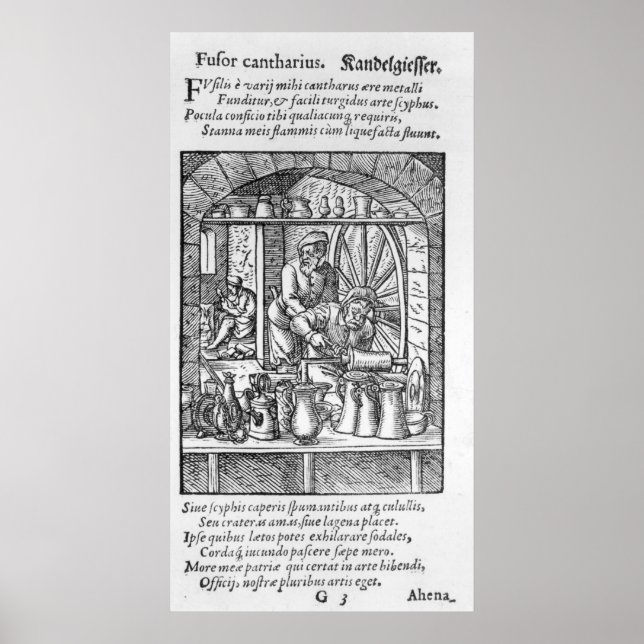 Fuſor cantharius. Kandelgieſſer.
FVſilis è varij mihi cantharus ære metalli
Funditur, & facili turgidus arte ſcyphus.
Pocula conficio tibi qualiacunq́; requiris,
Stanna meis flammis cùm liquefacta fluunt.
Siue ſcyphis caperis ſpumantibus atq́; culullis,
Seu crateras amas, ſiue lagena placet.
Ipſe quibus lætos potes exhilarare ſodales,
Cordaq́; iucundo paſcere ſæpe mero.
More meæ patriæ qui certat in arte bibendi,
Officij, noſtræ pluribus artis eget.
G 3 Ahena_